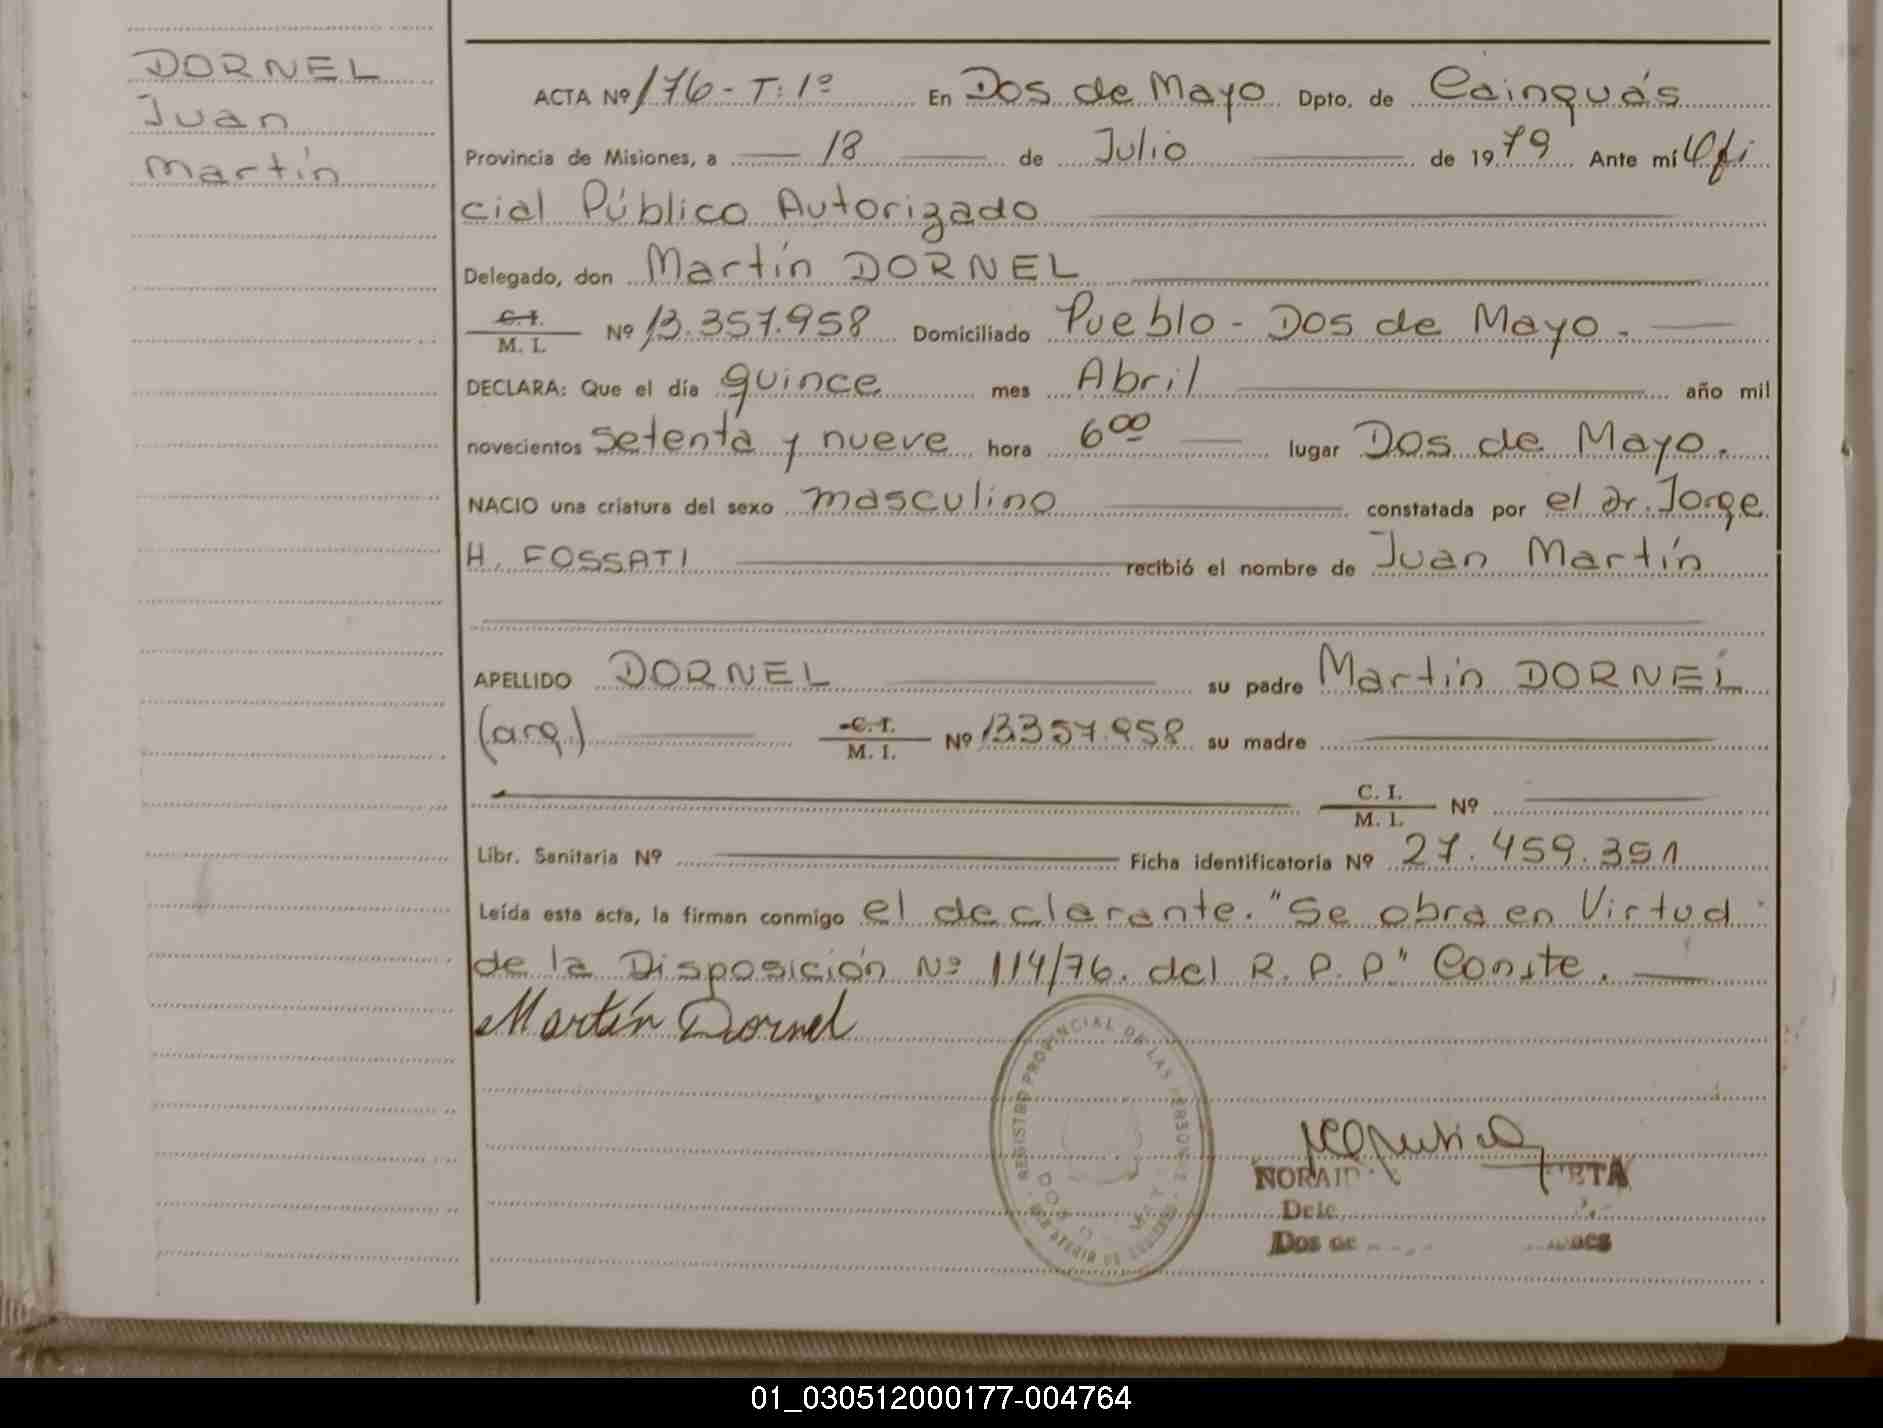 DORNEL
Juan
Martín
ACTA Nº 176 - T: 1º En Dos de Mayo Dpto. de Cainguás
Provincia de Misiones, a 18 de Julio de 1979 Ante mí Ofi
cial Público Autorizado
Delegado, don Martín DORNEL
C.I.
M. I. Nº 13.357.958 Domiciliado Pueblo - Dos de Mayo.
DECLARA: Que el día quince mes Abril año mil
novecientos setenta y nueve hora 6 00 lugar Dos de Mayo.
NACIO una criatura del sexo masculino constatada por el dr. Jorge
H. FOSSATI recibió el nombre de Juan Martín
APELLIDO DORNEL su padre Martín DORNEL
(arg.) C.I.
M. I. Nº 13357.958 su madre
C. I.
M. I. Nº
Libr. Sanitaria Nº Ficha identificatoria Nº 27.459.351
Leída esta acta, la firman conmigo el declarante. "Se obra en Virtud
de la Disposición Nº 114/76. del R. P. P" Conste.
Martín Dornel
REGISTRO PROVINCIAL DE LAS PERSONAS
NORAI
Dele
Dos de
01_030512000177-004764